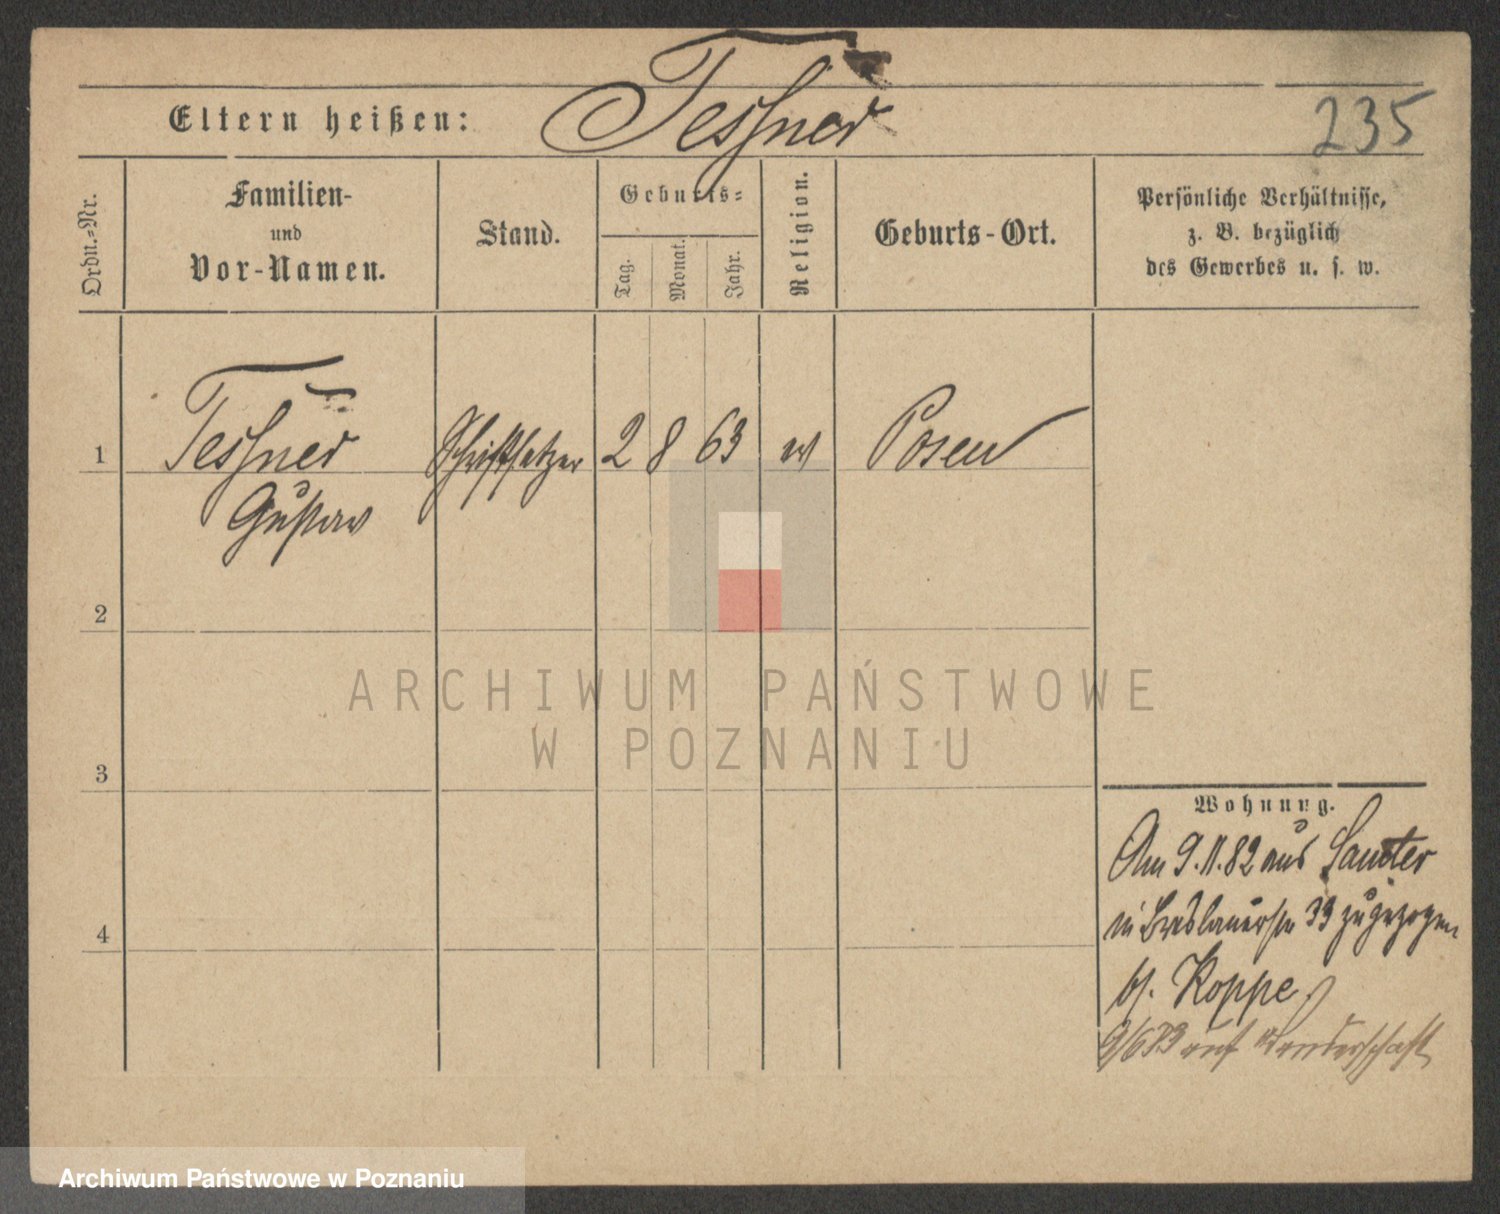 Teßner
Eltern heißen:
235
Ordn.-Nr.
Familien-
und
Vor-Namen.
Stand.
Geburts-
Tag.
Monat.
Jahr.
Religion.
Geburts-Ort.
Persönliche Verhältnisse,
z. B. bezüglich
des Gewerbes u. s. w.
1 Teßner Schriftsetzer 2 8 63 Posen
Gustav
2
ARCHIWUM PAŃSTWOWE
W POZNANIU
3
Wohnung.
Am 9.11.82 aus Samter
in Breslauerstr 33 zugezogen
bei Koppe
auf Wanderschaft
4
Archiwum Państwowe w Poznaniu